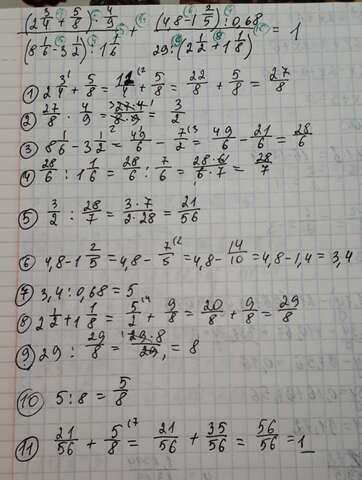 (2 3/4 + 5/8) · 4/9 / (8 1/6 - 3 1/2) : 1 1/6 + (4,8 - 1 2/5) : 0,68 / 29 : (2 1/2 + 1 1/8) = 1
① 2 3/4 + 5/8 = 11/4 + 5/8 = 22/8 + 5/8 = 27/8
② 27/8 · 4/9 = 27·4/8·9 = 3/2
③ 8 1/6 - 3 1/2 = 49/6 - 7/2 = 49/6 - 21/6 = 28/6
④ 28/6 : 1 1/6 = 28/6 : 7/6 = 28·6/6·7 = 28/7
⑤ 3/2 : 28/7 = 3·7/2·28 = 21/56
⑥ 4,8 - 1 2/5 = 4,8 - 7/5 = 4,8 - 14/10 = 4,8 - 1,4 = 3,4
⑦ 3,4 : 0,68 = 5
⑧ 2 1/2 + 1 1/8 = 5/2 + 9/8 = 20/8 + 9/8 = 29/8
⑨ 29 : 29/8 = 29·8/29 = 8
⑩ 5 : 8 = 5/8
⑪ 21/56 + 5/8 = 21/56 + 35/56 = 56/56 = 1